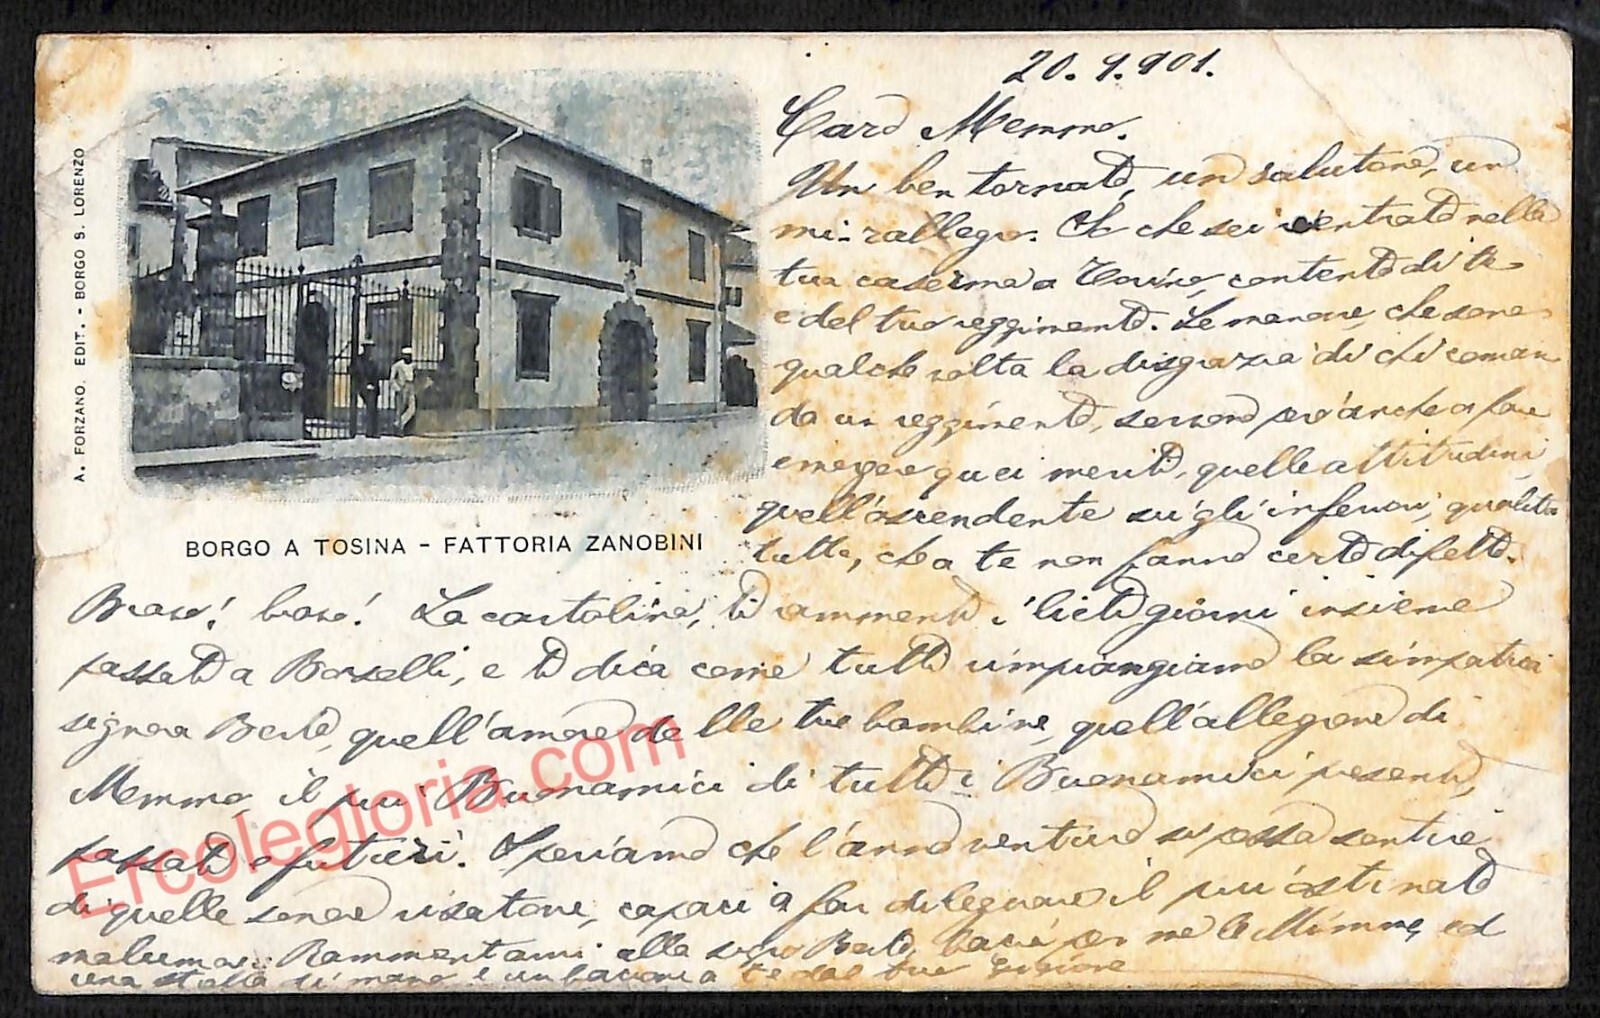 A. FORZANO. EDIT. - BORGO S. LORENZO
BORGO A TOSINA - FATTORIA ZANOBINI
20.9.901.
Caro Memmo.
Un ben tornato, un salutone, un
mi rallegro. che sei rientrato nella
tua caserma a Torino, contento di te
e del tuo reggimento. Le manovre, che sono
qualche volta la disgrazia di chi coman
da un reggimento, servono però anche a far
emergere quei meriti, quelle attitudini
quell'ascendente sugli inferiori, qualità
tutte, che a te non fanno certo difetto.
Bravo! bravo! La cartolina, ti rammenti i lieti giorni insieme
passati a Borselli, e ti dica come tutti rimpiangiamo la simpatica
signora Berta, quell'amore delle tue bambine, quell'allegrone di
Memmo, il più Buonamici di tutti i Buonamici presenti,
passati e futuri. Speriamo che l'anno venturo si possa sentire
di quelle sonore risatone, capaci a far dileguare il più ostinato
malumore. Rammentami alla sigra Berta, bacia per me le Mimme, ed
una stretta di mano e un bacione a te dal tuo
Ercolegloria.com